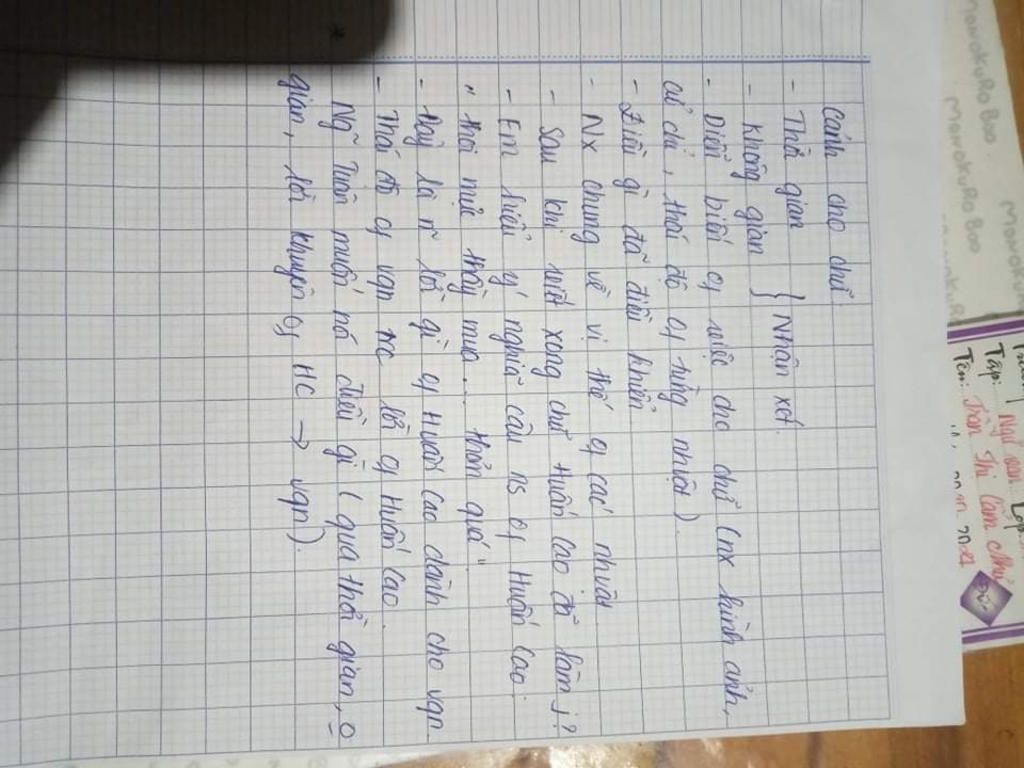 Cảnh cho chữ:
- Thời gian } Nhận xét.
- Không gian
- Diễn biến of việc cho chữ (nx hình ảnh,
cử chỉ, thái độ of từng nhvật)
- Điều gì đã điều khiển
- Nx chung về vị thế of các nhvật
- Sau khi viết xong chữ Huấn Cao đã làm j?
- Em hiểu ý nghĩa câu ns of Huấn Cao:
" thoi mực thầy mua... thơm quá"
- Đây là n~ lời gì of Huấn Cao dành cho vqn.
- Thái độ of vqn trc lời of Huấn Cao.
Ng~ Tuân muốn nói điều gì ( qua thời gian, o
gian, lời khuyên of HC → vqn).
MONOKURO BOO
MONOKURO BOO
Tập: Ngữ văn Lớp:
Tên: Trần Thị Cẩm Như